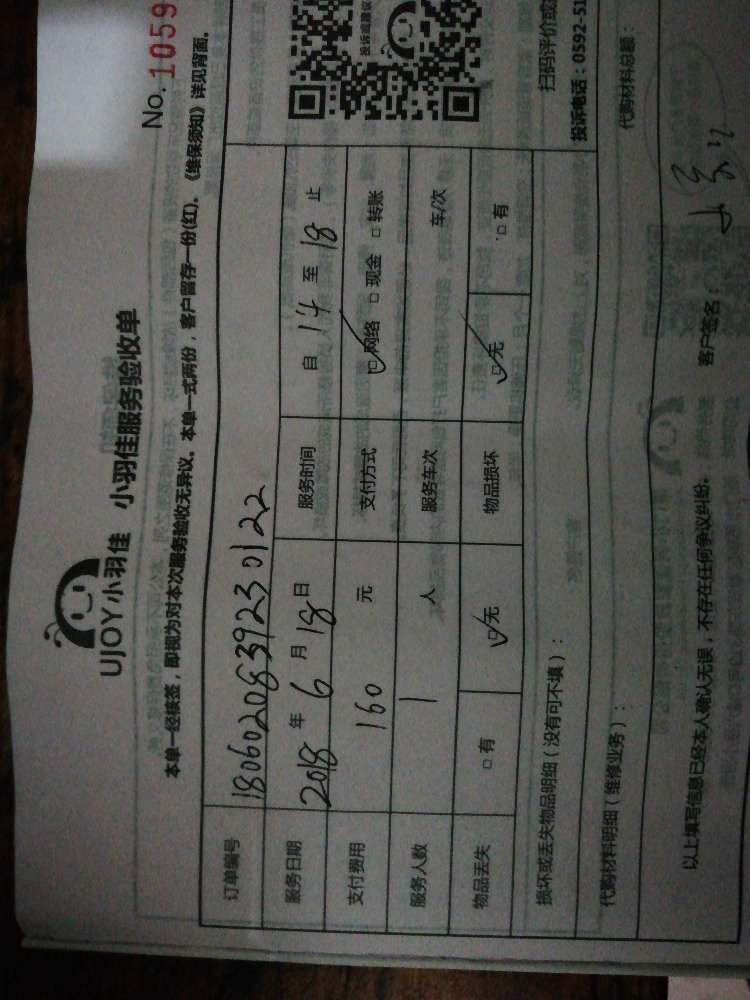 No.1059
UJOY小羽佳 小羽佳服务验收单
本单一经核签，即视为对本次服务验收无异议。本单一式两份，客户留存一份(红)。《维保须知》详见背面。
订单编号 1806020839230122
服务日期 2018年6月18日 服务时间 自14至18止
支付费用 160元 支付方式 ☑网络 □现金 □转账
服务人数 1人 服务车次 车/次
物品丢失 □有 ☑无 物品损坏 ☑无 □有
损坏或丢失物品明细（没有可不填）：
代购材料明细（维修业务）： 代购材料总额：
以上填写信息已经本人确认无误，不存在任何争议纠纷。 客户签名：
投诉或建议
扫码评价或
投诉电话：0592-51